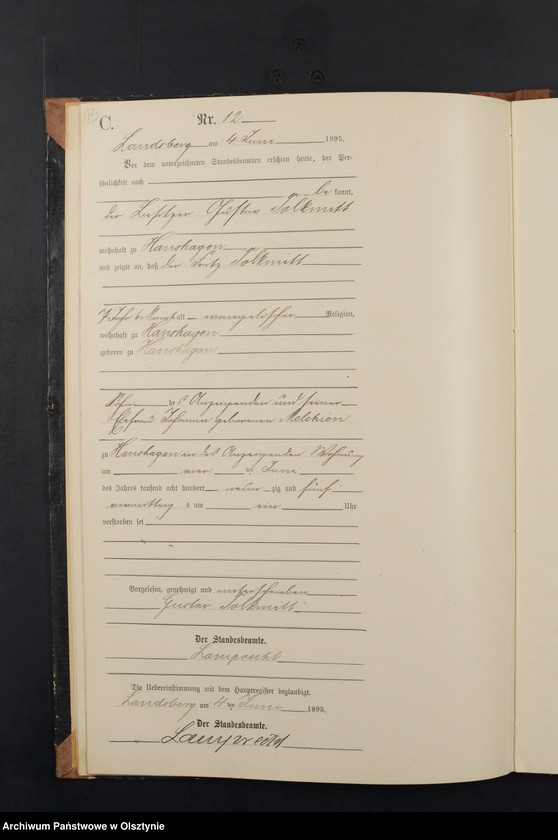 C.
Nr. 12
Landsberg am 4 Juni 1895.
Vor dem unterzeichneten Standesbeamten erschien heute, der Per-
sönlichkeit nach
be kannt,
der Besitzer Gustav Tolkmitt
wohnhaft zu Hanshagen
und zeigte an, daß der Fritz Tolkmitt
7 Jahr 6 Monat alt evangelischer Religion,
wohnhaft zu Hanshagen
geboren zu Hanshagen
Sohn des Anzeigenden und seiner
Ehefrau Johanna geborenen Melchien
zu Hanshagen in des Anzeigenden Wohnung
am vier ten Juni
des Jahres tausend acht hundert neun zig und fünf
vormittags um ein Uhr
verstorben sei
Vorgelesen, genehmigt und unterschrieben
Gustav Tolkmitt
Der Standesbeamte.
Lamprecht
Die Uebereinstimmung mit dem Hauptregister beglaubigt.
Landsberg am 4 ten Juni 1895.
Der Standesbeamte.
Lamprecht
Archiwum Państwowe w Olsztynie